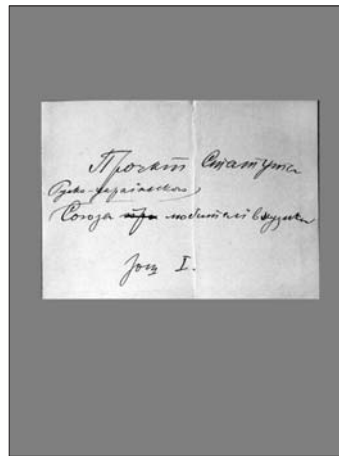 Проект Статута
Руско-украінского
Союза при любителів музики
Зош I.